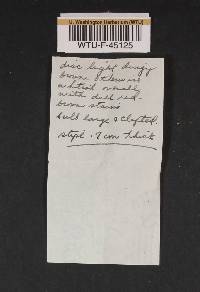 U. Washington Herbarium (WTU)
WTU-F-45125
disc light dingy
brown otherwise
whitish overall
with dull red-
brown stains
bulb large & clefted.
stipe .9 cm thick